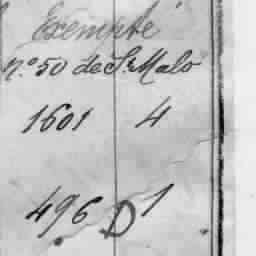 Exempté
n.º 50 de St Malo
1601 4
496 D 1